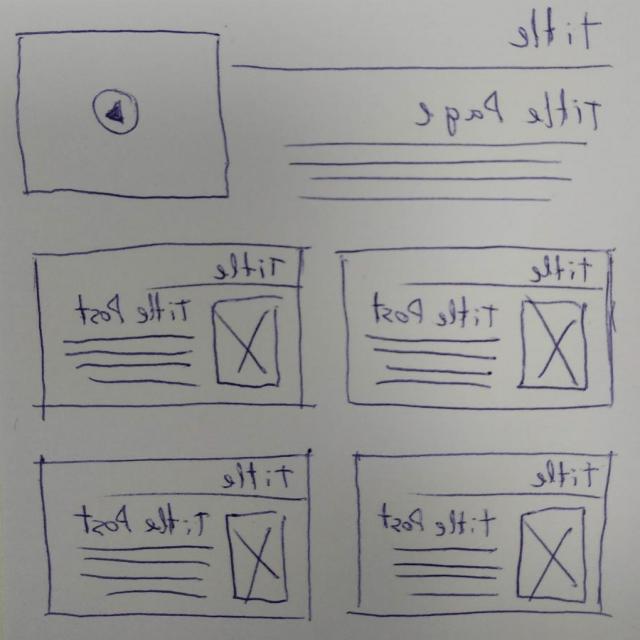 Title
Title Page
Title
Title Post
Title
Title Post
Title
Title Post
Title
Title Post